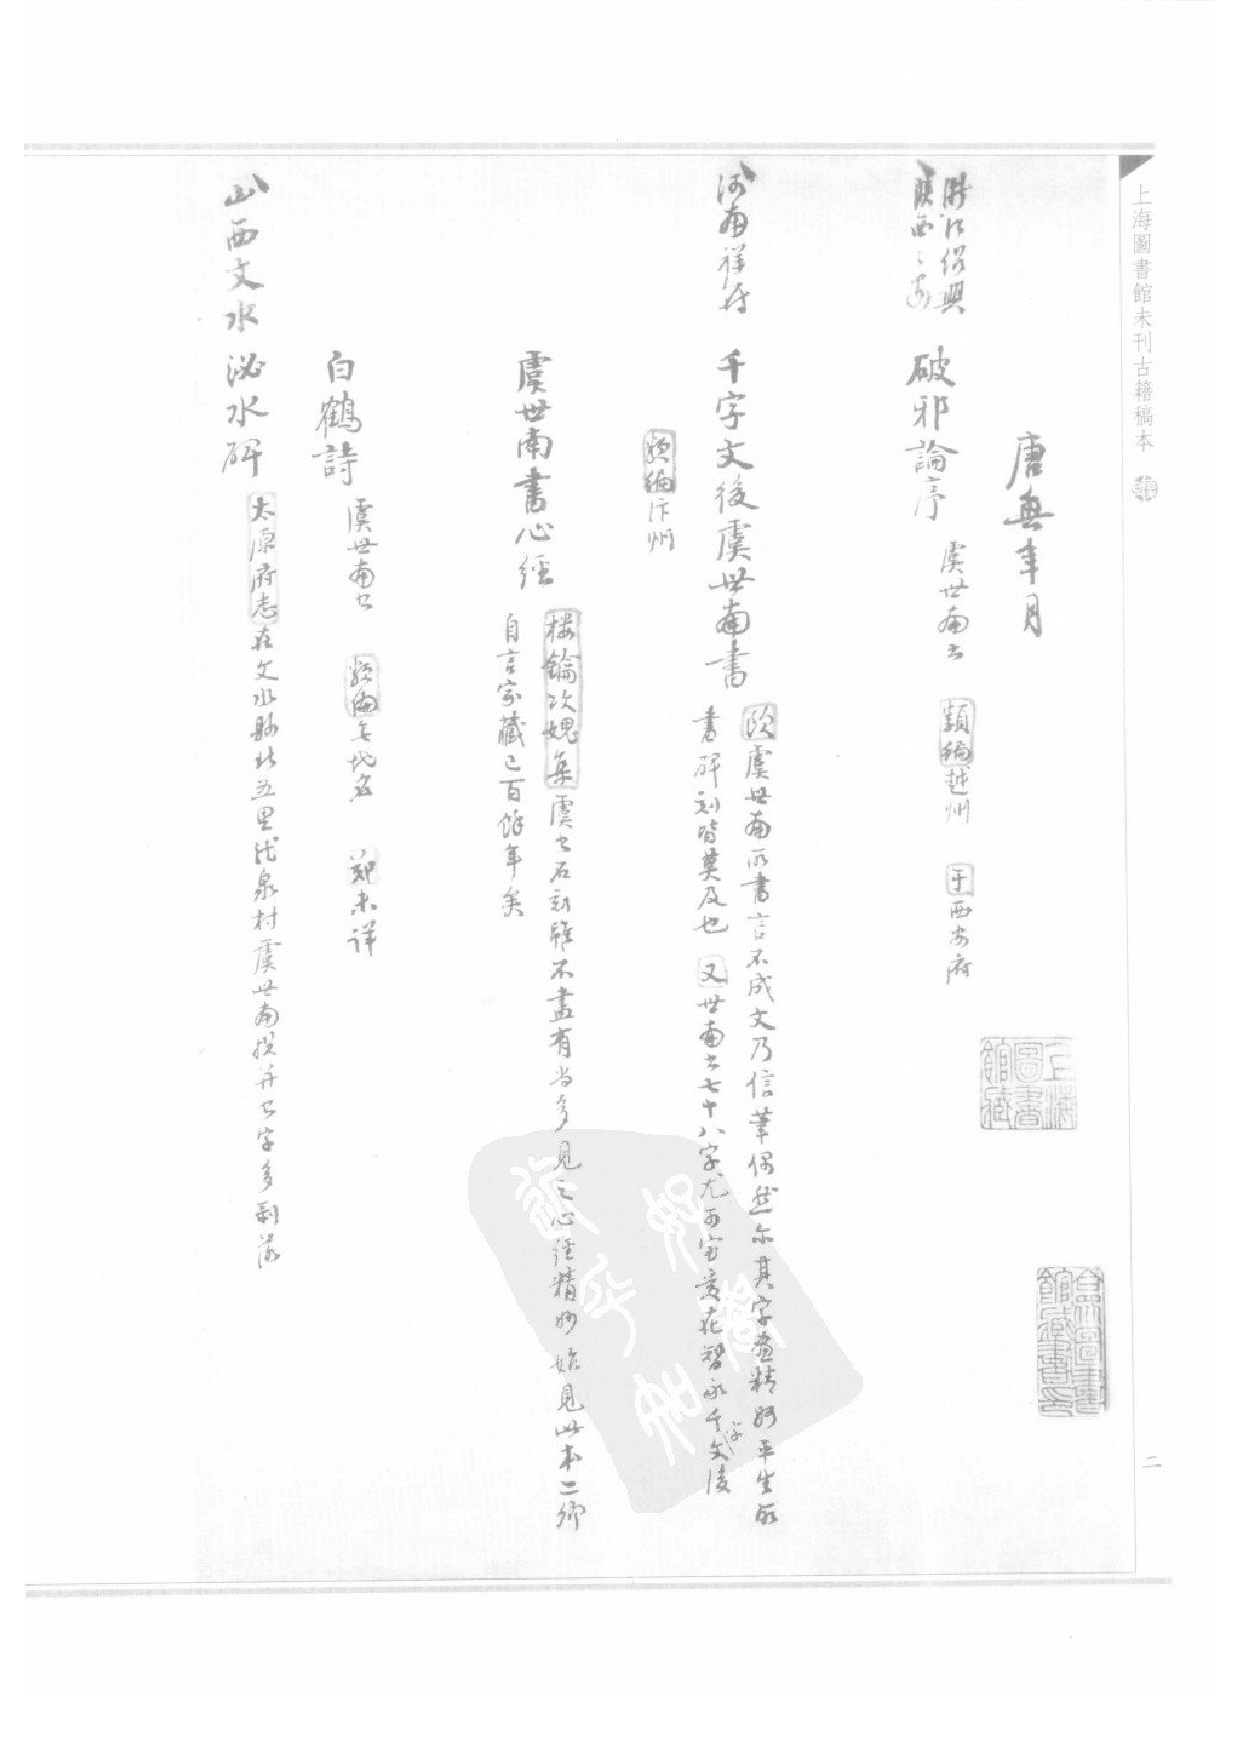 上海圖書館未刊古籍稿本
唐無年月
浙江紹興
陝西
破邪論序
虞世南書
類編越州
于西安府
河南祥符
千字文後虞世南書
歐虞世南所書言不成文乃信筆偶然尔其字畫精妙平生所
書碑刻皆莫及也 又世南書七十八字尤可寶愛在智永千字文後
類編汴州
虞世南書心經
樓鑰攻媿集虞書石刻雖不盡有尚多見之心經精妙始見此本二卿
自言家藏已百餘年矣
白鶴詩
虞世南書
類編無地名
鄭未詳
山西文水
泌水碑
太原府志在文水縣北五里武泉村虞世南撰并書字多剝落
上海圖書館藏
合眾圖書館藏書印
二